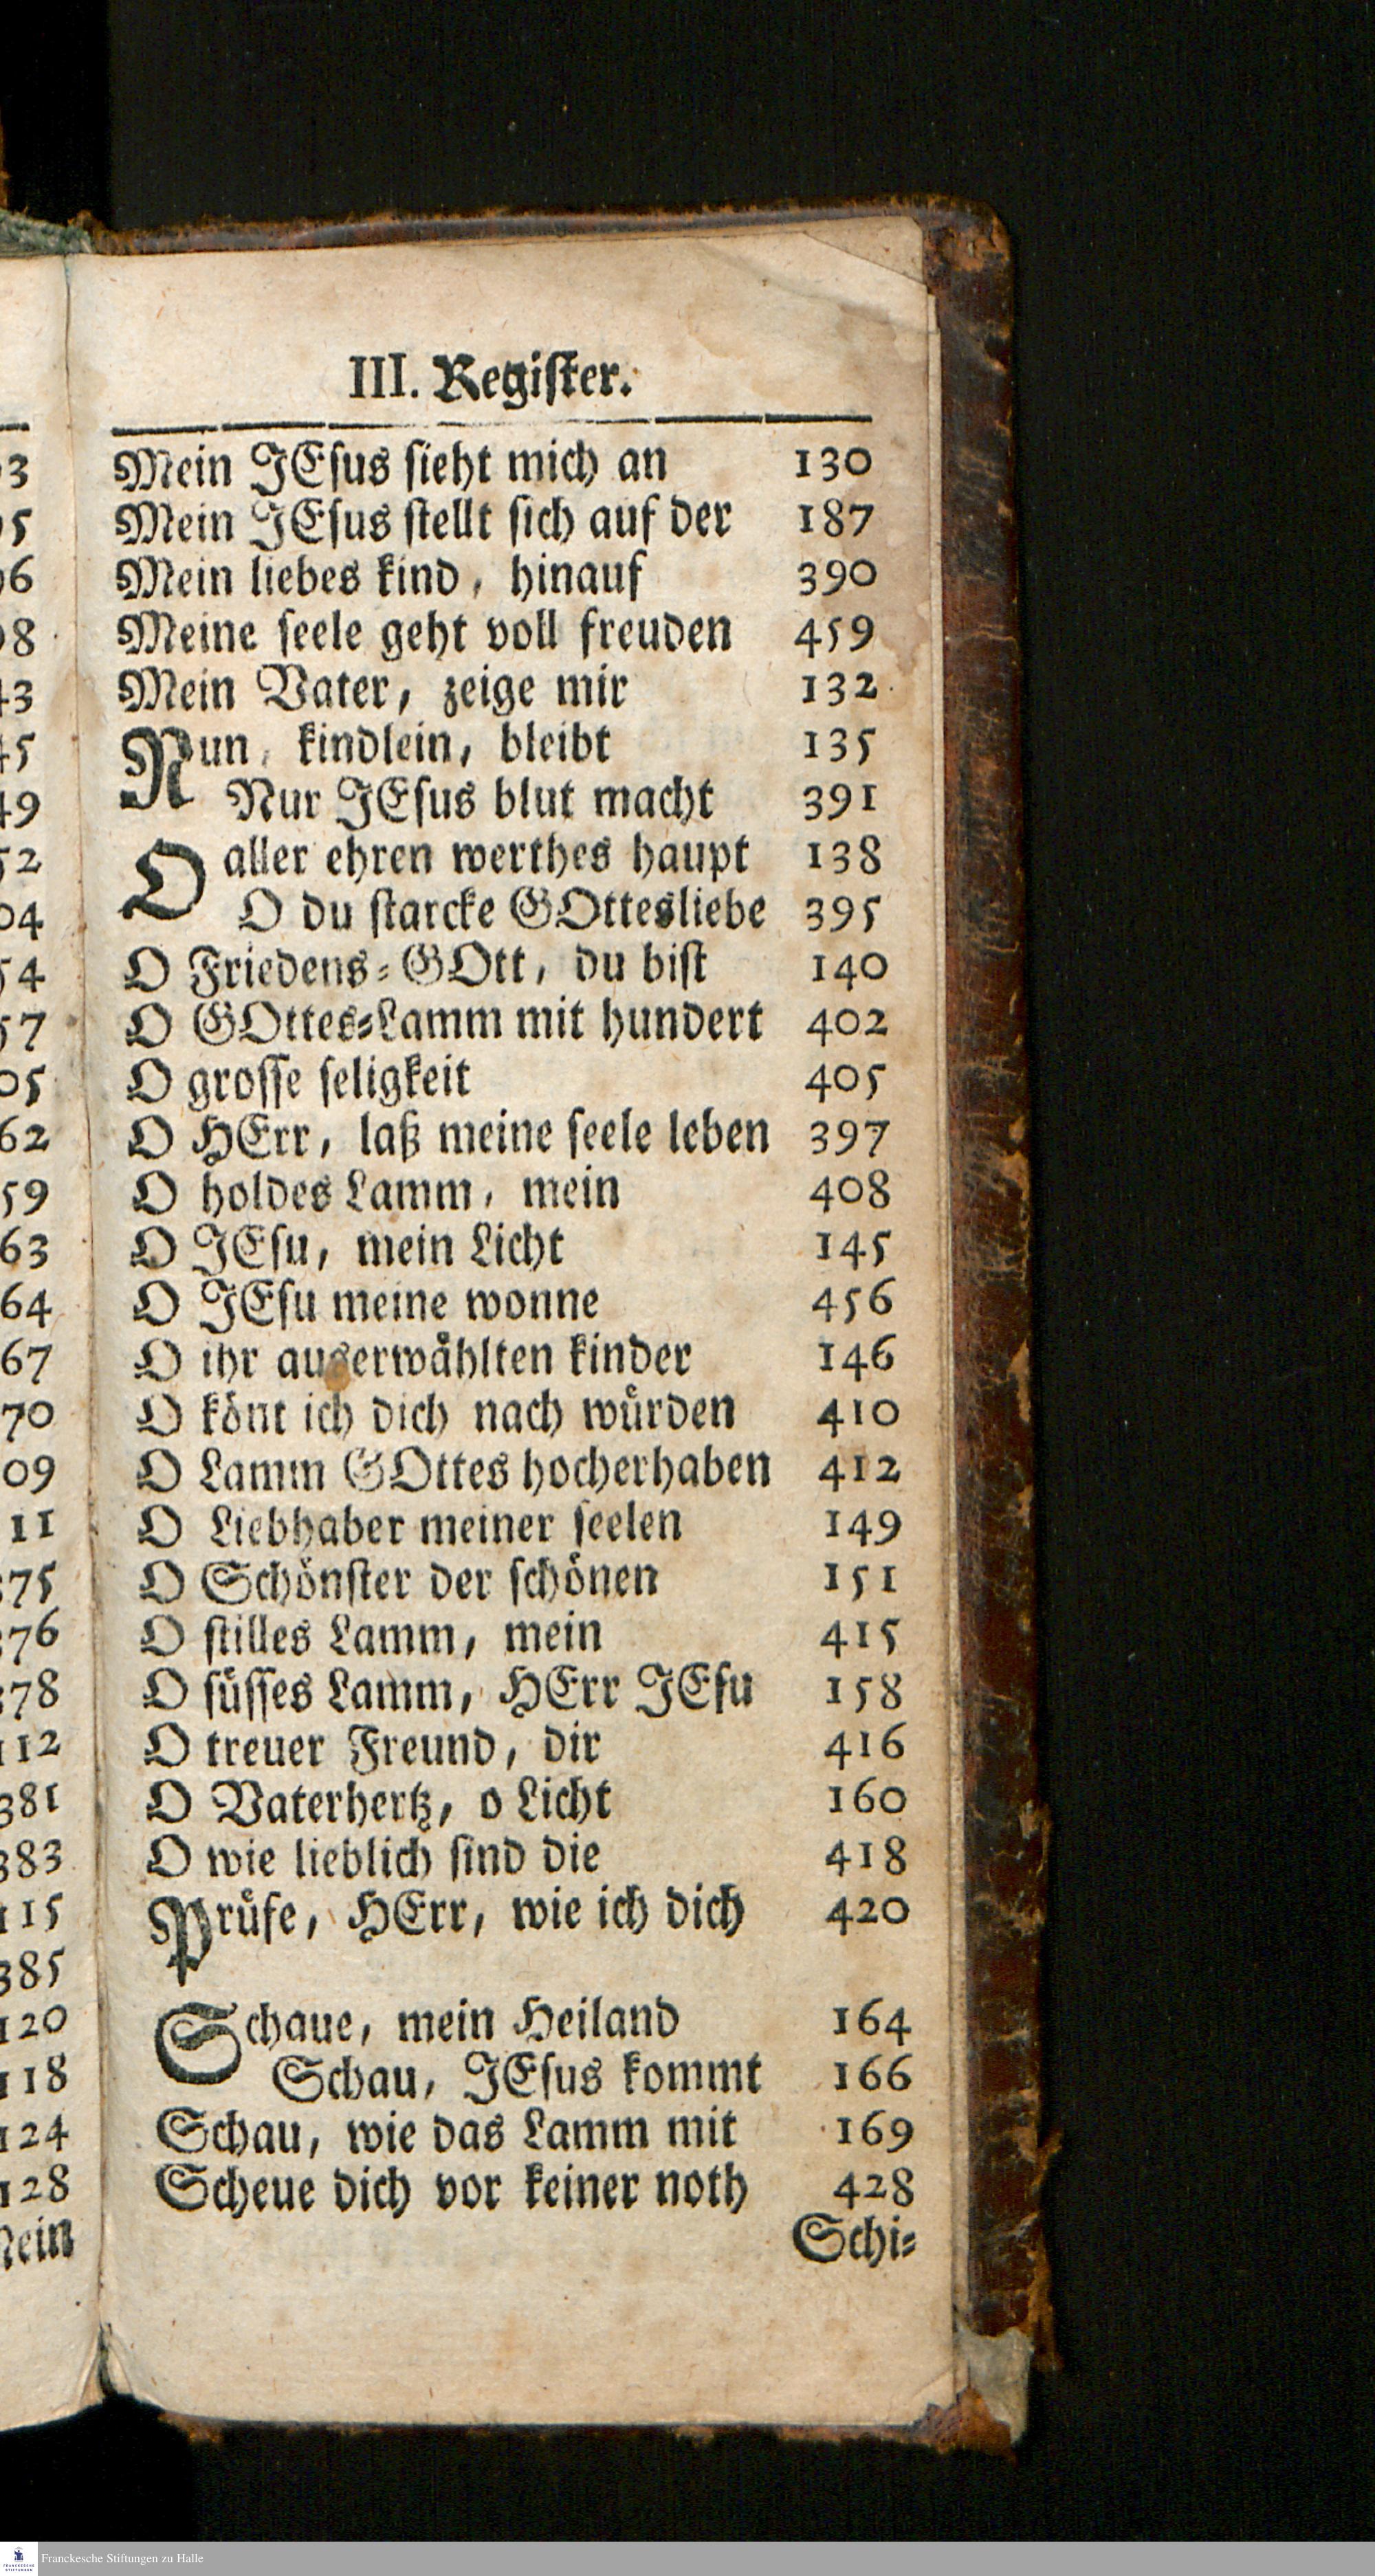 III. Regiſter.
Mein JEſus ſieht mich an 130
Mein JEſus ſtellt ſich auf der 187
Mein liebes kind, hinauf 390
Meine ſeele geht voll freuden 459
Mein Vater, zeige mir 132
Nun, kindlein, bleibt 135
Nur JEſus blut macht 391
O aller ehren werthes haupt 138
O du ſtarcke GOttesliebe 395
O Friedens-GOtt, du biſt 140
O GOttes-Lamm mit hundert 402
O groſſe ſeligkeit 405
O HErr, laß meine ſeele leben 397
O holdes Lamm, mein 408
O JEſu, mein Licht 145
O JEſu meine wonne 456
O ihr auserwåhlten kinder 146
O könt ich dich nach wůrden 410
O Lamm GOttes hocherhaben 412
O Liebhaber meiner ſeelen 149
O Schönſter der ſchönen 151
O ſtilles Lamm, mein 415
O ſůſſes Lamm, HErr JEſu 158
O treuer Freund, dir 416
O Vaterhertz, o Licht 160
O wie lieblich ſind die 418
Průfe, HErr, wie ich dich 420
Schaue, mein Heiland 164
Schau, JEſus kommt 166
Schau, wie das Lamm mit 169
Scheue dich vor keiner noth 428
Schi-
Franckesche Stiftungen zu Halle